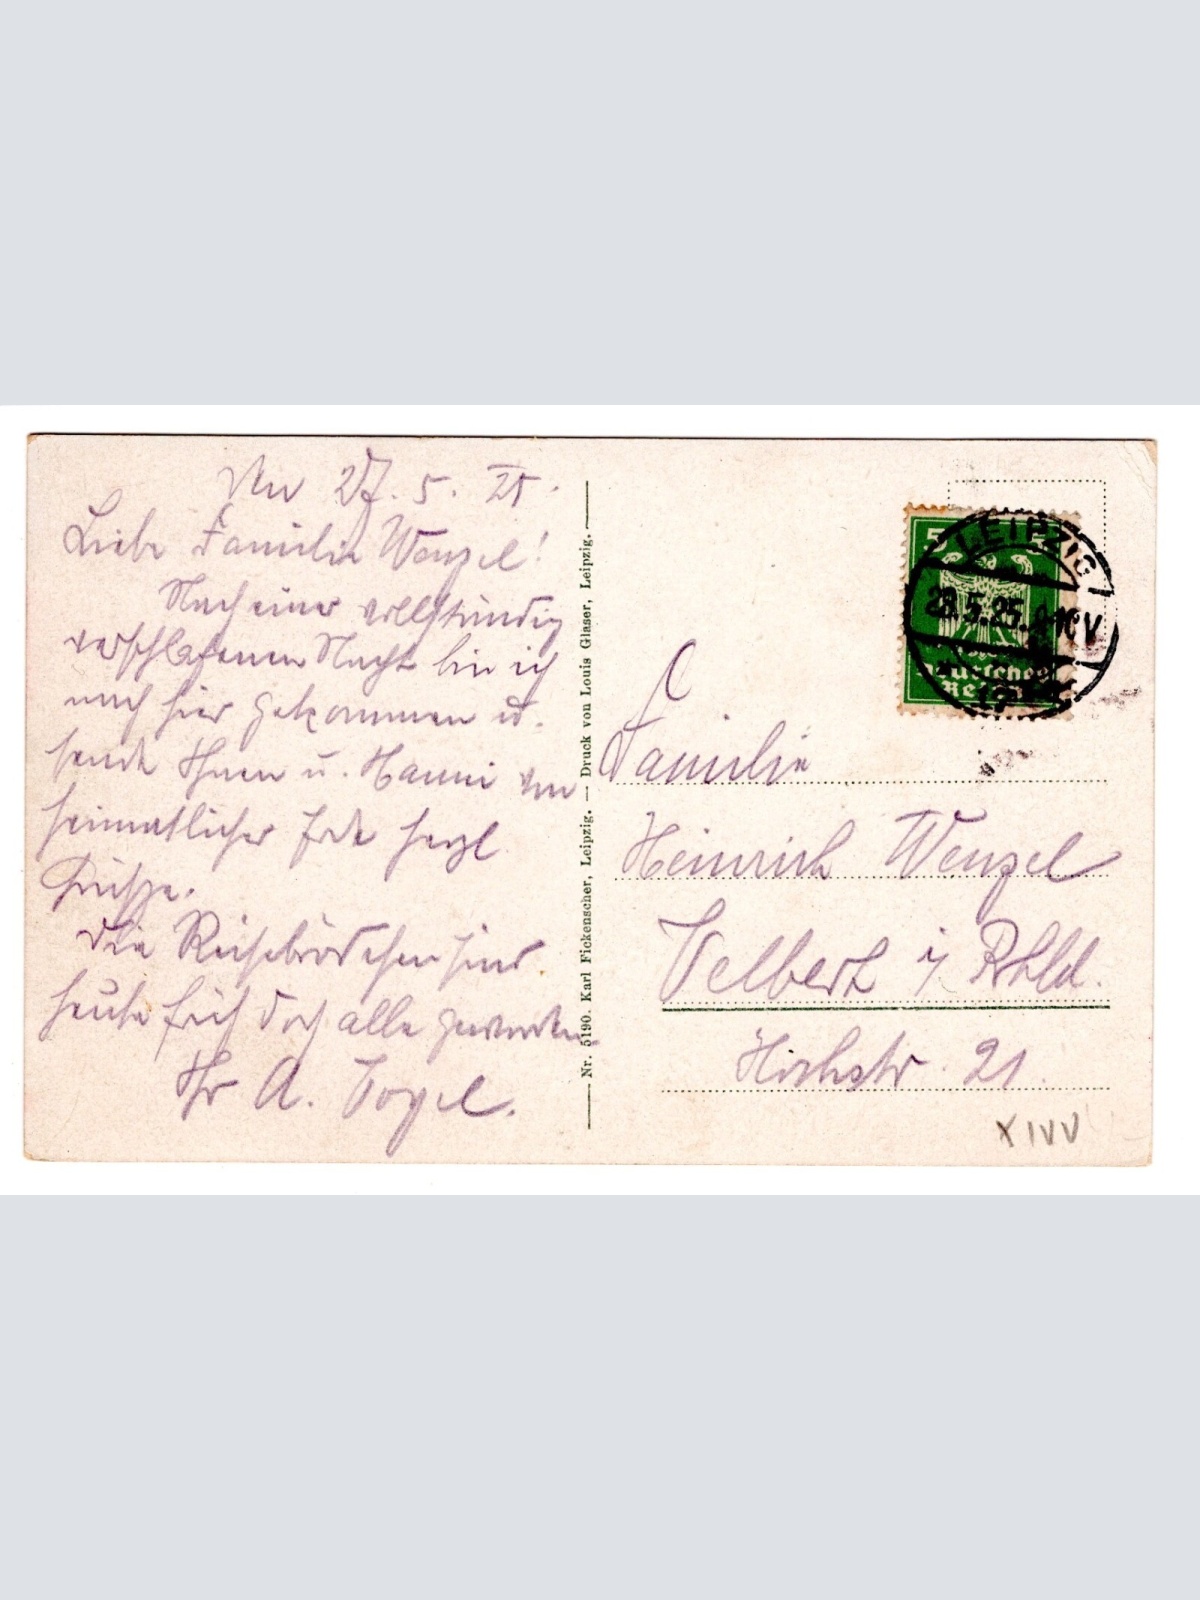 Den 27. 5. 25.
Liebe Familie Wenzel!
Nach einer vollständig
verschlafenen Nacht bin ich
nach hier gekommen u.
sende Ihnen u. Hanni von
heimatlicher Erde herzl
Grüße.
Die Reisebrödchen sind
heute früh doch alle geworden.
Ihr A. Vogel.
Nr. 5190. Karl Fickenscher, Leipzig. — Druck von Louis Glaser, Leipzig.
5
LEIPZIG
28.5.25.
10 V
Deutsches
Reich
Familie
Heinrich Wenzel
Velbert i/ Rhld.
Hochstr. 21.
X IVV